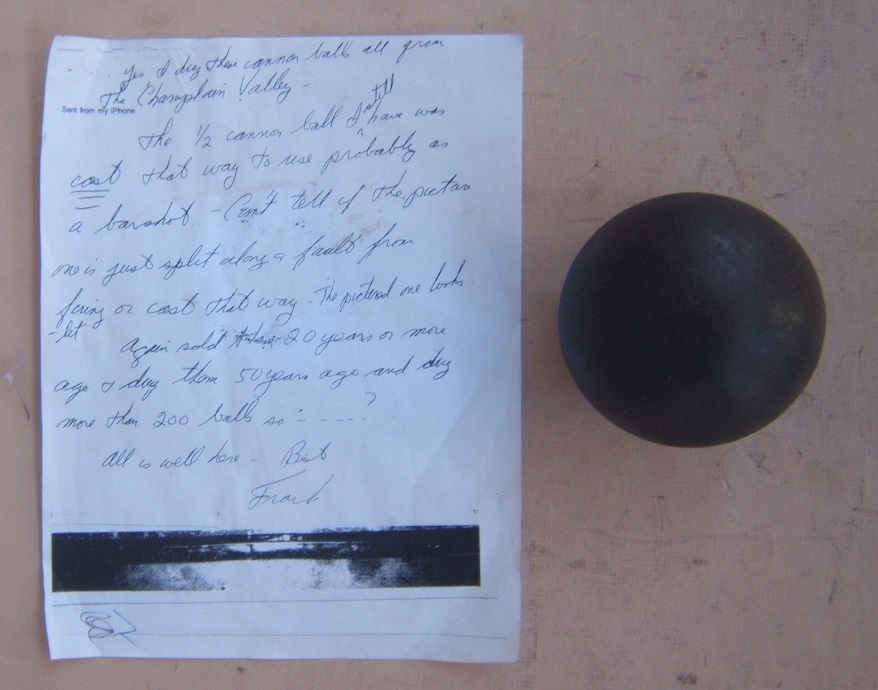 Yes I dug these cannon balls all from
The Champlain Valley -
Sent from my iPhone
still
The 1/2 cannon ball I ^ have was
cast that way to use probably as
a barshot. - Can't tell if the picture
one is just split along a fault from
firing or cast that way - The pictured one looks
Again sold 20 years or more
ago & dug them 50 years ago and dug
more than 200 balls so - - - - - ?
All is well here - Best
Frank